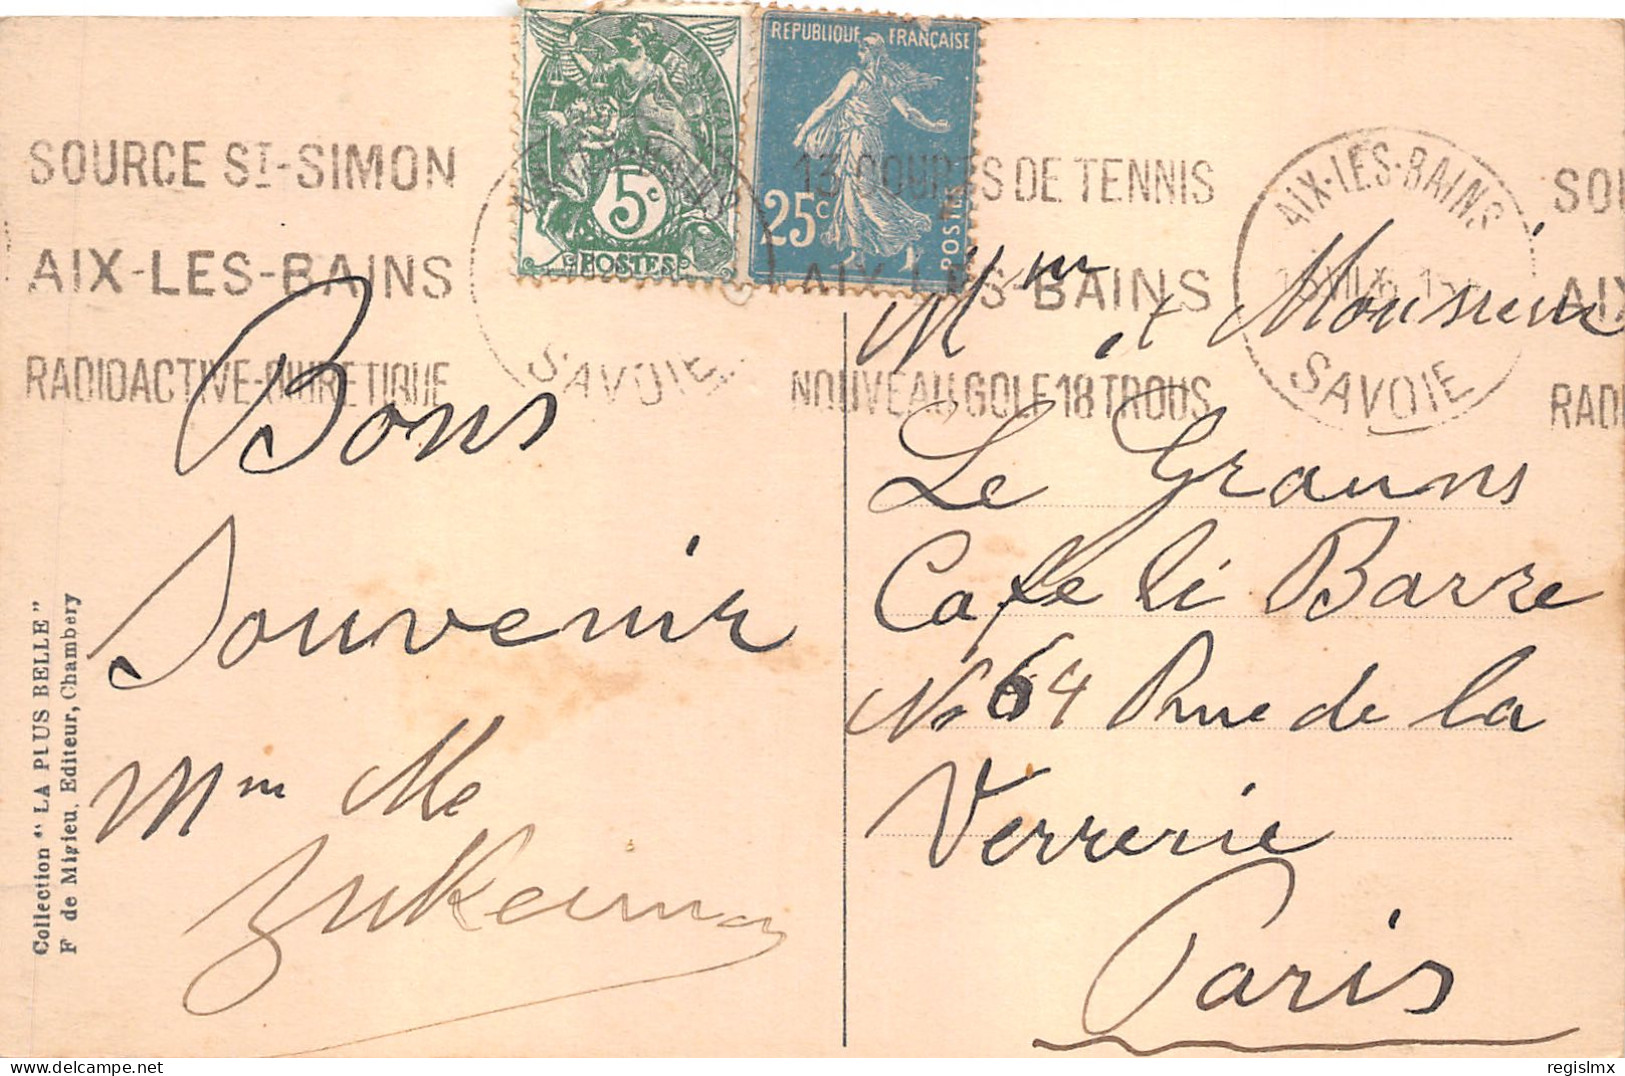 REPUBLIQUE FRANÇAISE
5c
POSTES
25c
POSTES
SOURCE ST-SIMON
AIX-LES-BAINS
RADIOACTIVE-DIURETIQUE
SAVOIE
13 COURTS DE TENNIS
AIX-LES-BAINS
NOUVEAU GOLF 18 TROUS
AIX-LES-BAINS
SAVOIE
SOU
AIX
RADI
Bons
Souvenir
Mm Me
Mm et Monsieur
Le Grauns
Cafe li Barre
No 64 Rue de la
Verrerie
Paris
Collection "LA PLUS BELLE"
F de Migieu, Editeur, Chambery
regislmx